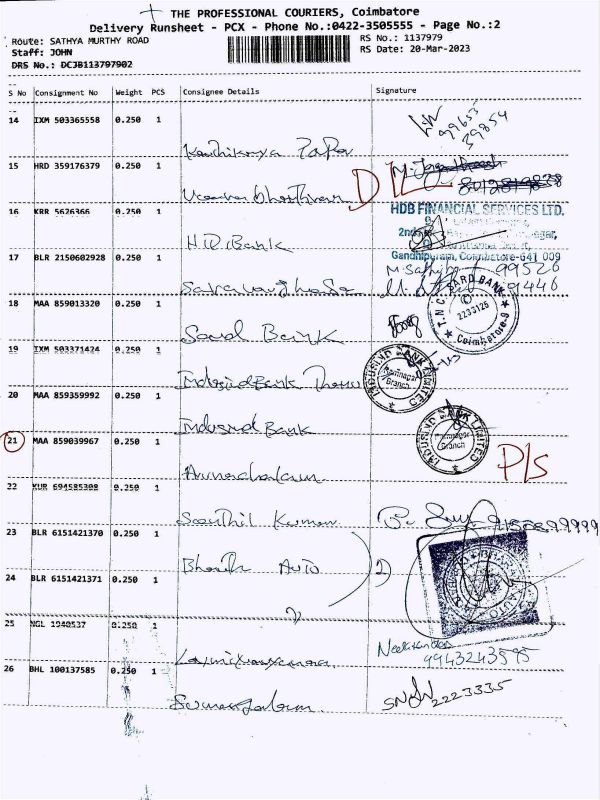 THE PROFESSIONAL COURIERS, Coimbatore
Delivery Runsheet - PCX - Phone No.:0422-3505555 - Page No.:2
Route: SATHYA MURTHY ROAD
RS No.: 1137979
Staff: JOHN
RS Date: 20-Mar-2023
DRS No.: DCJB113797902
S No Consignment No Weight PCS Consignee Details Signature
14 IXM 503365558 0.250 1
99655
39854
15 HRD 359176379 0.250 1
D/L
16 KRR 5626366 0.250 1
HDB FINANCIAL SERVICES LTD.
Gandhipuram, Coimbatore-641 009
HDB Bank
17 BLR 2150602928 0.250 1
99526
91446
18 MAA 859013320 0.250 1
T.N.C. CARD BANK
2233126
Coimbatore-9
Bank
19 IXM 503371424 0.250 1
INDUSIND BANK LIMITED
Ramnagar
Branch
Indusind Bank
20 MAA 859359992 0.250 1
Indusind Bank
INDUSIND BANK LIMITED
Ramnagar
Branch
21 MAA 859039967 0.250 1
P/S
Arunachalam
22 KUR 694585308 0.250 1
Senthil Kumar
23 BLR 6151421370 0.250 1
Bharath Auto
24 BLR 6151421371 0.250 1
25 NGL 1940537 0.250 1
Neelakandan
9943243595
26 BHL 100137585 0.250 1
2223335